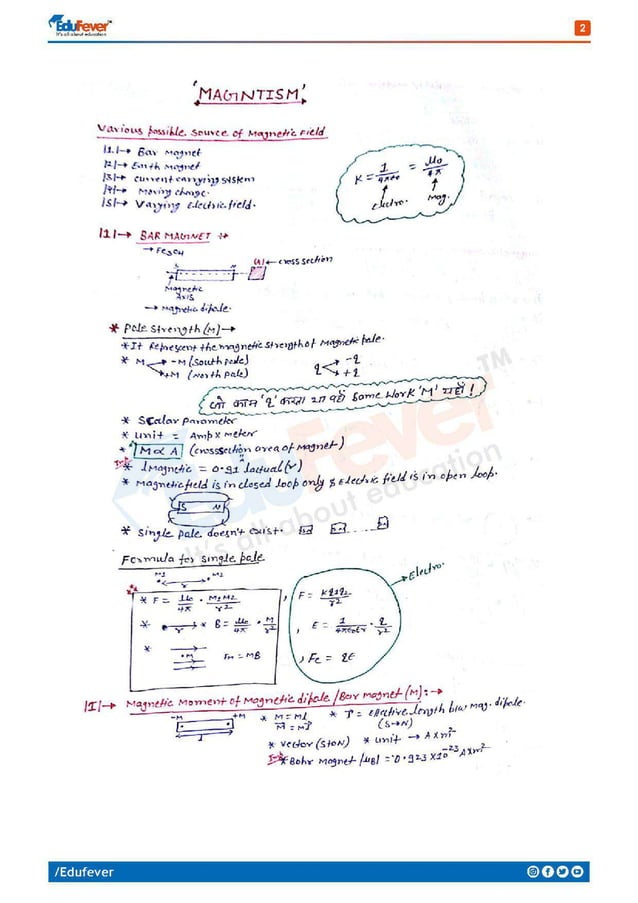 EduFever™
It's all about education
2
'MAGINTISM'
Various possible source of Magnetic Field
|1|→ Bar Magnet
|2|→ Earth Magnet
|3|→ current carrying system
|4|→ Moving charge
|5|→ Varying Electric field.
K = 1/4πε0 = μ0/4π
Electro. Mag.
|1|→ BAR MAGNET :→
→ Fe3O4
S N |A| ← cross section
Magnetic
Axis
→ Magnetic dipole.
* Pole strength (M) →
* It Represent the magnetic strength of Magnetic pole.
* M -M (South pole) q -q
+M (North pole) +q
जो काम 'q' करता था वहाँ Same Work 'M' यहाँ !
* Scalar parameter
* unit = Amp x meter
* M ∝ A (crosssection area of magnet)
Imp * lmagnetic = 0.91 lactual (r)
* Magnetic field is in closed loop only & Electric field is in open loop.
S N
* Single pole doesn't exist.
EduFever™
It's all about education
Formula for single pole
M1 r M2
* F = μ0/4π · M1M2/r²
* r B = μ0/4π · M/r²
* •M Fm = MB
, F = Kq1q2/r²
, E = 1/4πε0εr · q/r²
, Fe = qE
Electro.
|I|→ Magnetic Moment of Magnetic dipole/Bar magnet (M) :→
-M +M * M = Ml * l = effective length b/w mag. dipole.
l M = Ml (S→N)
* vector (S to N) * unit → A x m²
Imp * Bohr Magnet |μB| = 0.923 x 10⁻²³ A x m²
/Edufever